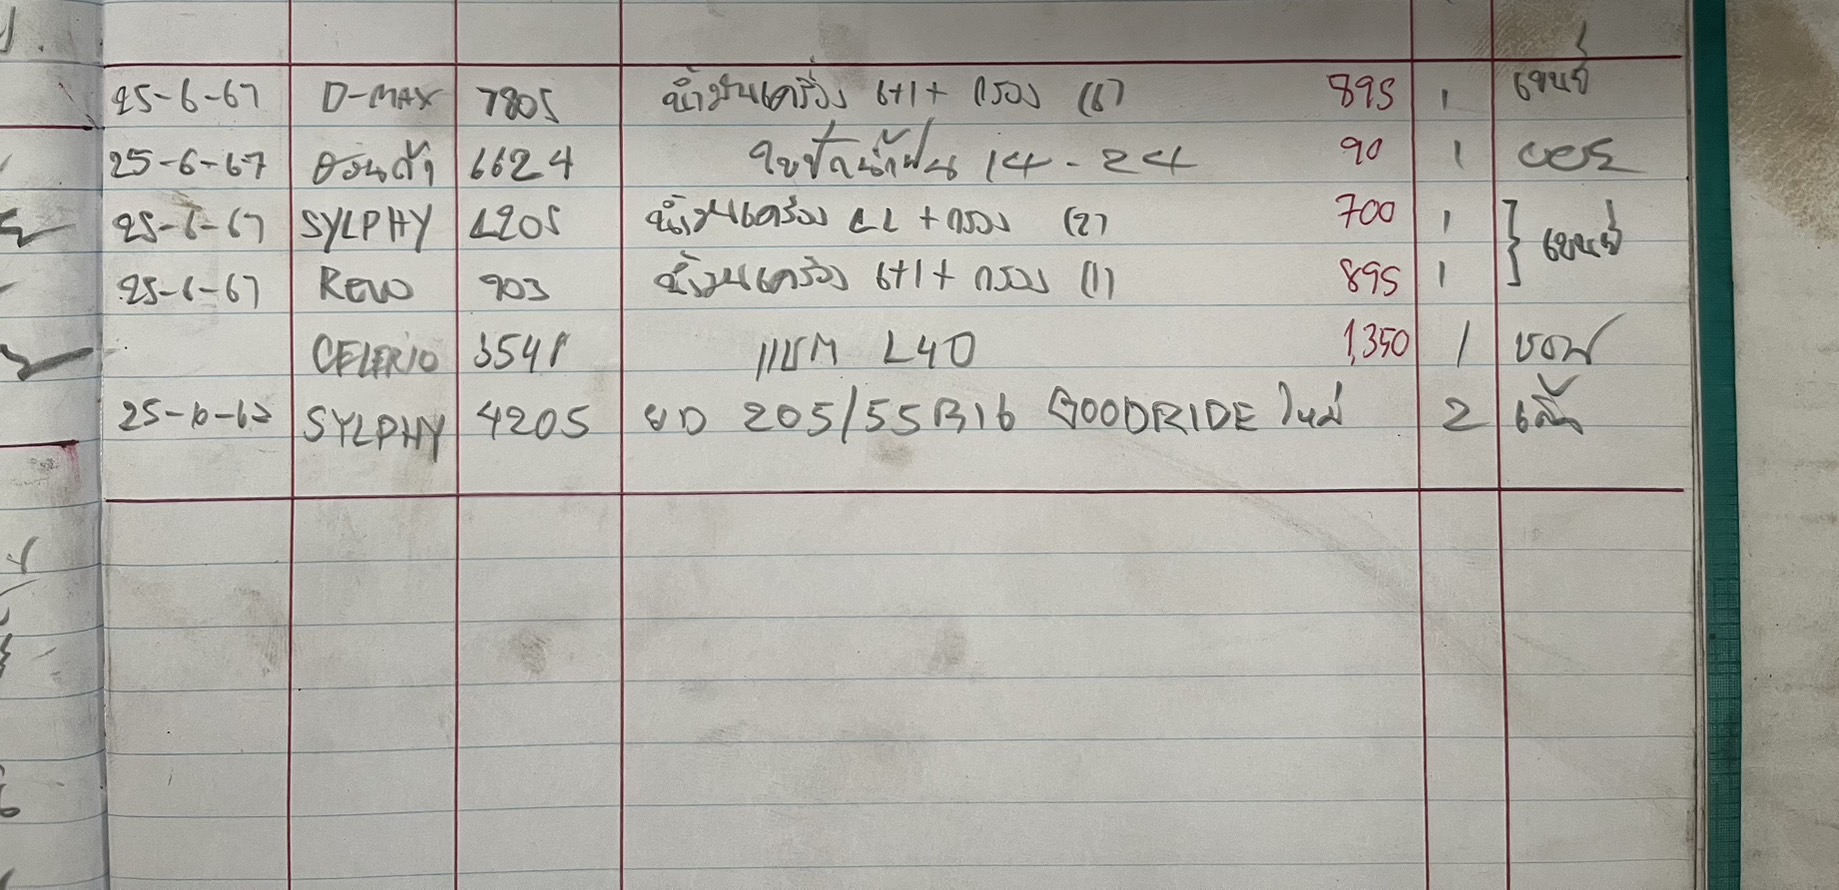 25-6-67 D-MAX 7805 น้ำมันเครื่อง 6+1+ กรอง (6) 895 1
25-6-67 ฮอนด้า 6624 ใบปัดน้ำฝน 14-24 90 1
25-6-67 SYLPHY 4205 น้ำมันเครื่อง 4L + กรอง (2) 700 1
25-6-67 Revo 903 น้ำมันเครื่อง 6+1+ กรอง (1) 895 1
CELERIO 3541 แบต L40 1,350 1
SYLPHY 4205 205/55R16 GOODRIDE ใหม่ 2